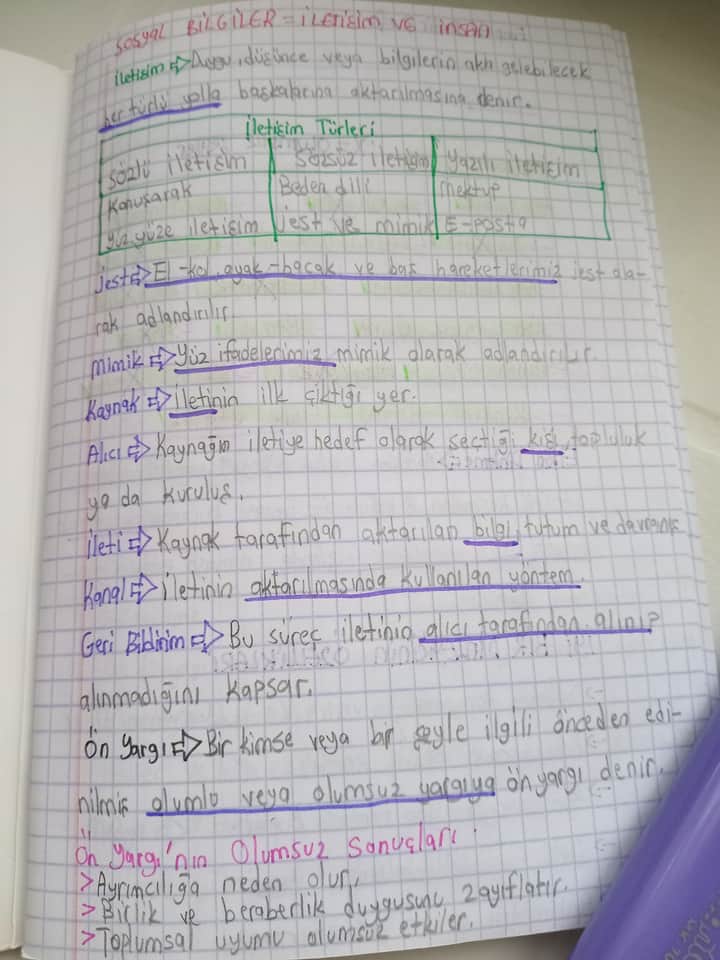 SOSYAL BİLGİLER = İLETİŞİM VE İNSAN
İletişim ⇨ Duygu, düşünce veya bilgilerin akla gelebilecek
her türlü yolla başkalarına aktarılmasına denir.
İletişim Türleri
Sözlü iletişim Sözsüz iletişim Yazılı iletişim
Konuşarak Beden dili Mektup
Yüz yüze iletişim Jest ve mimik E-posta
Jest ⇨ El-kol, ayak-bacak ve baş hareketlerimiz jest ola-
rak adlandırılır
Mimik ⇨ Yüz ifadelerimiz mimik olarak adlandırılır
Kaynak ⇨ İletinin ilk çıktığı yer.
Alıcı ⇨ Kaynağın iletiye hedef olarak seçtiği kişi, topluluk
ya da kuruluş.
İleti ⇨ Kaynak tarafından aktarılan bilgi, tutum ve davranış
Kanal ⇨ İletinin aktarılmasında kullanılan yöntem.
Geri Bildirim ⇨ Bu süreç iletinin alıcı tarafından alınıp
alınmadığını kapsar.
Ön Yargı ⇨ Bir kimse veya bir şeyle ilgili önceden edi-
nilmiş olumlu veya olumsuz yargıya ön yargı denir.
Ön Yargı'nın Olumsuz Sonuçları
> Ayrımcılığa neden olur.
> Birlik ve beraberlik duygusunu zayıflatır.
> Toplumsal uyumu olumsuz etkiler.